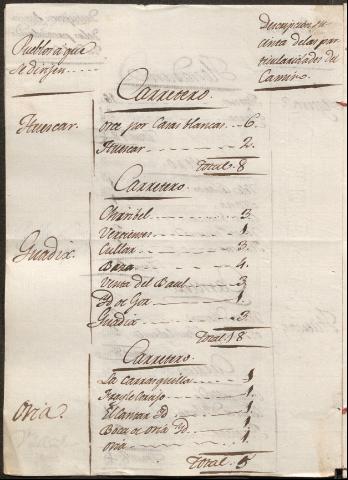 Pueblos á que
se dirijen
Descripcion su-
cinta de las par-
ticularidades del
Camino.
Carretero.
Huescar.
Orce por Casas blancas 6.
Huescar 2.
Total 8
Carretero.
Guadix.
Chiribel 3.
Vertientes 1.
Cullar 3.
Baza 4.
Venta del Baul 3.
Id de Gor 1.
Guadix 3.
Total. 18
Carretero.
Oria.
La carrasquilla 1
Frayle Canijo 1.
El Cantar Id 1.
Boca de Oria Id 1.
Oria 1.
Total. 5